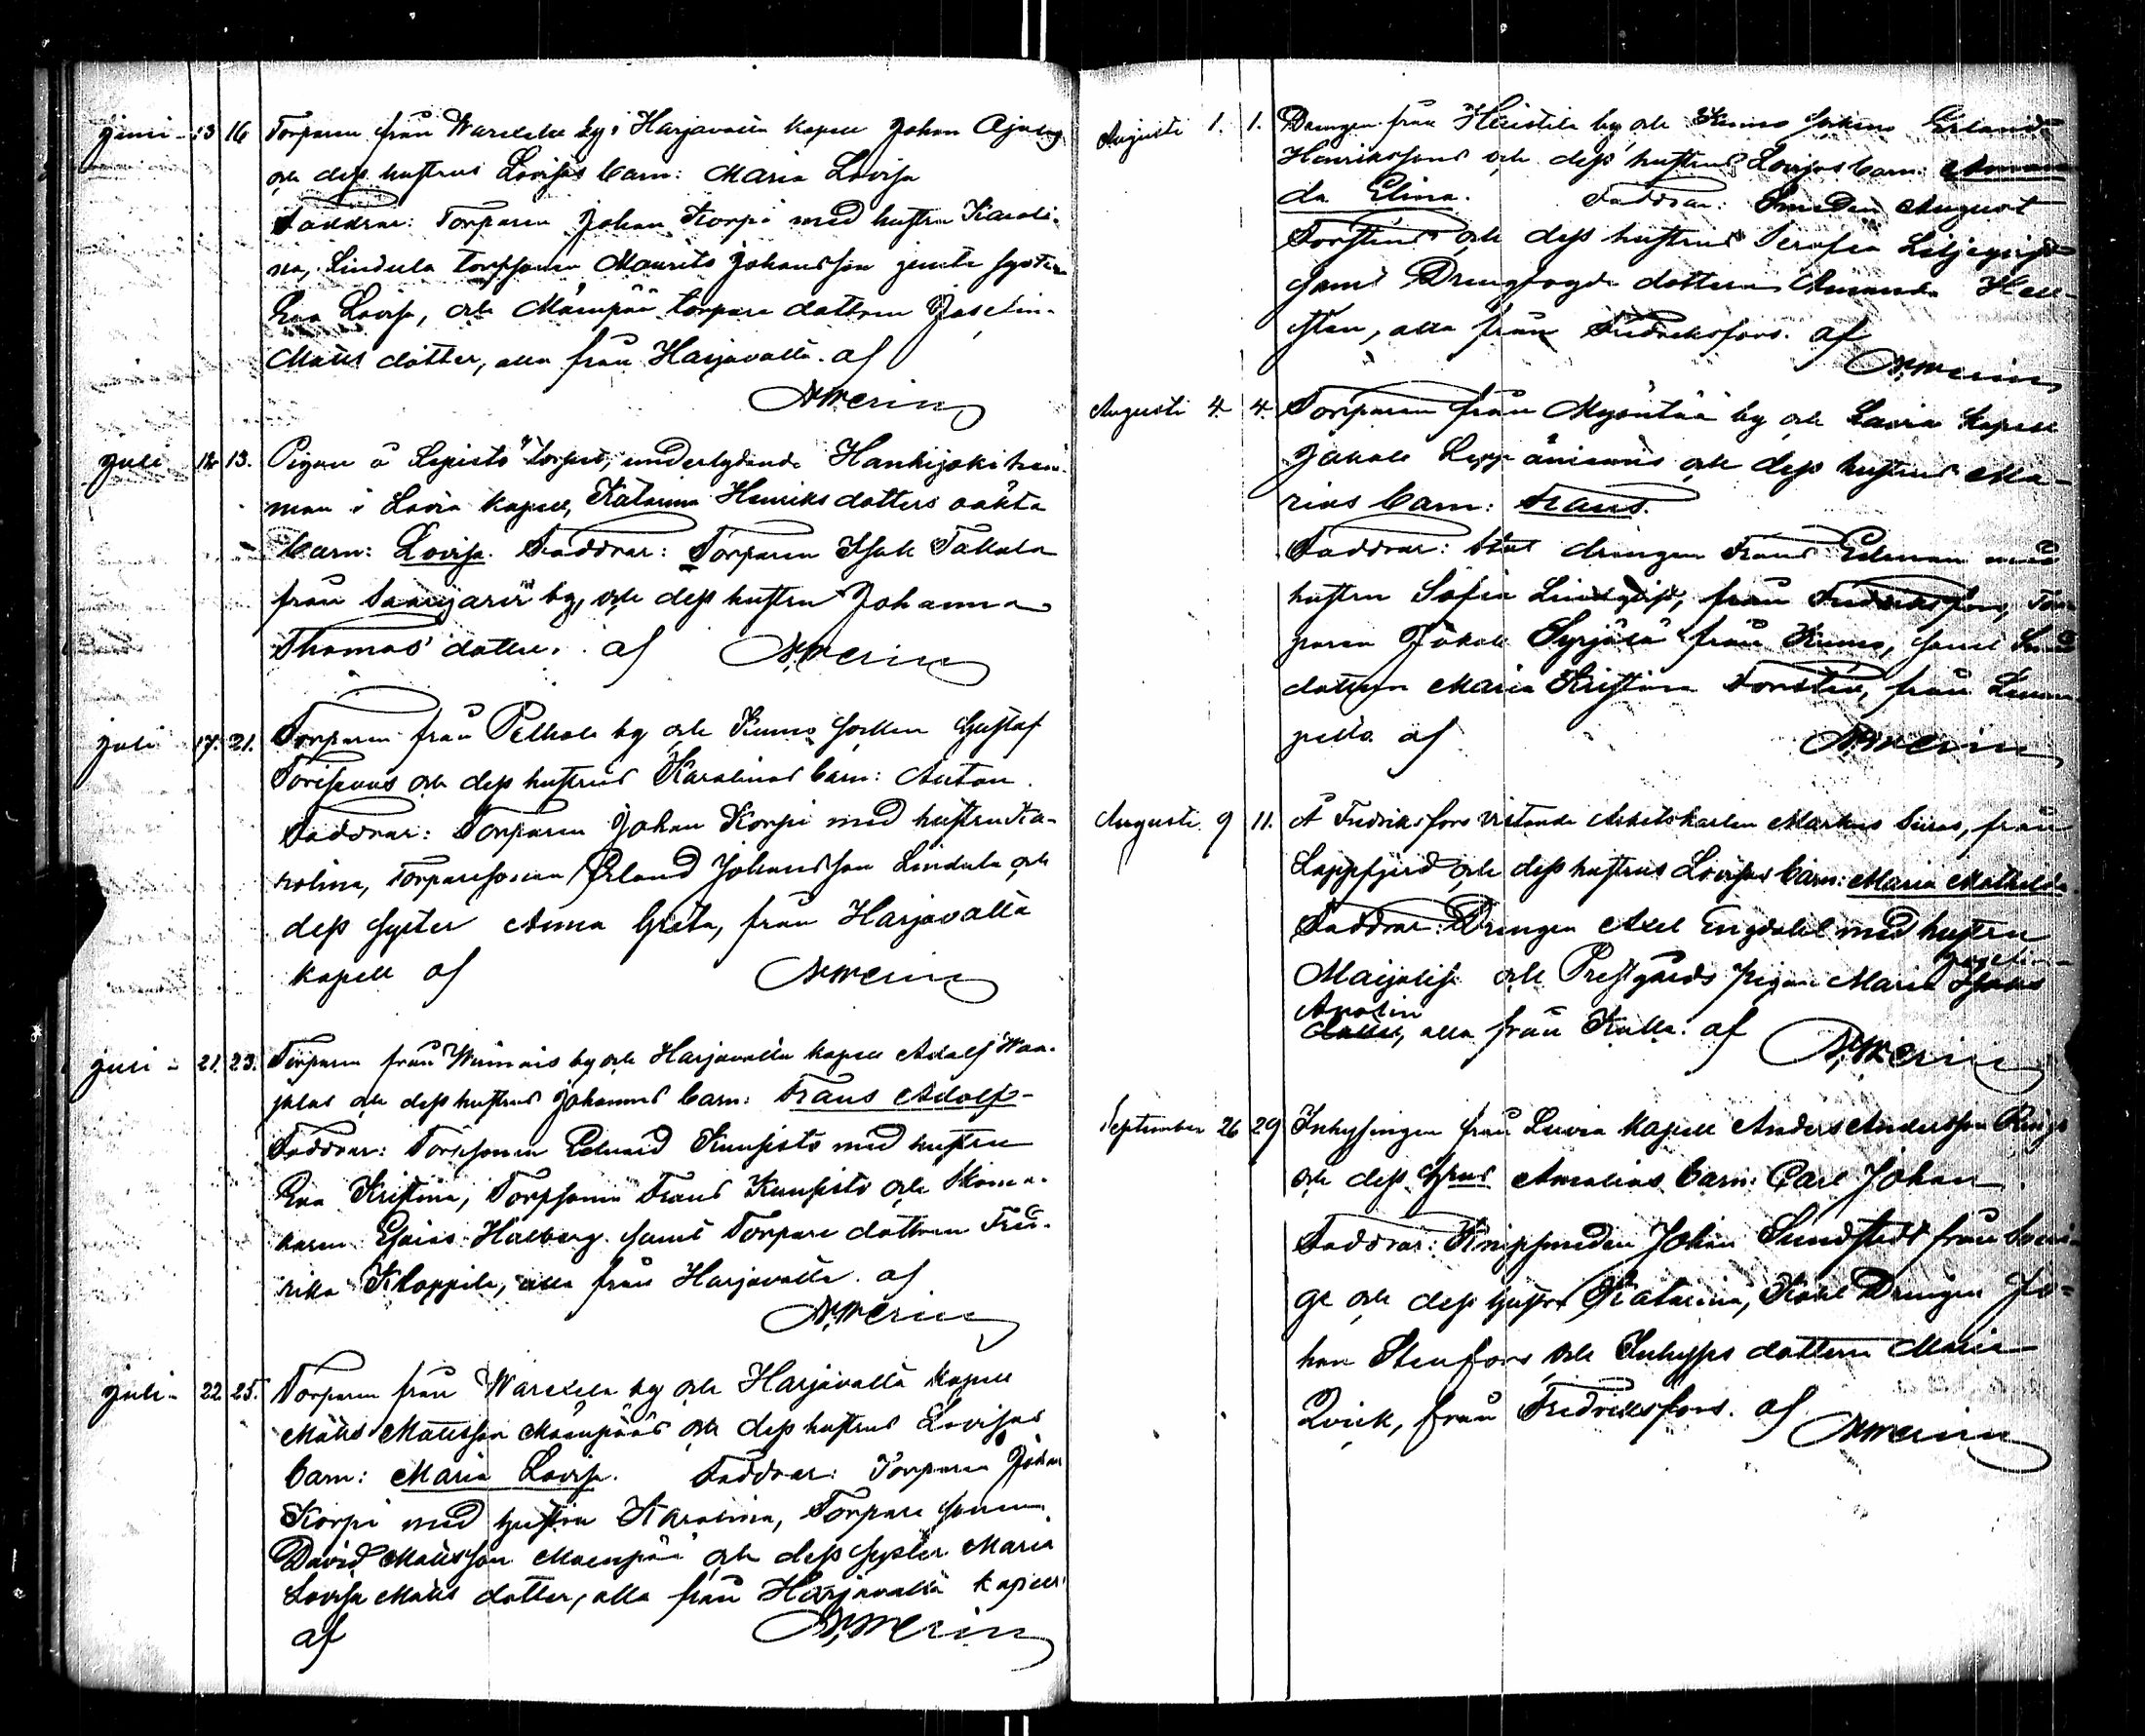 juni - 13 16 Torparen från Warekela by i Harjavalla kapell Johan
och dess hustrus Lovisas barn: Maria Lovisa
Faddrar: Torparen Johan Korpi med hustru Karoli-
na, Lindula torpsonen Maurits Johansson jemte syster
Eva Lovisa, och Mäenpää torpare dottren Josefin-
Matts dotter, alla från Harjavalla. af
juli 12 13. Pigan å Lepistö torpet, underlydande Hanhijoki hem-
man i Lavia kapell, Katarina Henriks dotters oäkta
barn: Lovisa. Faddrar: Torparen Isak Takala
från Saarijärvi by, och dess hustru Johanna
Thomas dotter. af
juli 17. 21. Torparen från Pelhola by och Kumo socken Gustaf
och dess hustrus Karolinas barn: Anton.
Faddrar: Torparen Johan Korpi med hustru Ka-
rolina, Torparesonen Erland Johansson Lindula och
dess syster Anna Greta, från Harjavalla
kapell af
juli - 21. 23. Torparen från by och Harjavalla kapell Adolf
och dess hustrus Johannas barn: Frans Adolf-
Faddrar: Torpsonen Eduard Kuusisto med hustru
Eva Kristina, Torpsonen Frans Kuusisto och Skoma-
karen Esaias Halberg samt Torpare dottren Fred-
rika Kloppila, alla från Harjavalla. af
juli - 22 25. Torparen från Warekela by och Harjavalla kapell
Matts Mattsson Mäenpääs och dess hustrus Lovisas
barn: Maria Lovisa. Faddrar: Torparen Johan
Korpi med hustru Karolina, Torpare sonen
David Mattsson Mäenpää och dess syster Maria
Lovisa Matts dotter, alla från Harjavalla kapell
af
Augusti 1. 1. Drengen från Haistila by och Kumo sokens Erland
Henrikssons och dess hustrus Lovisas barn: Aman
da Elina. Faddrar: Smeden August
Torstens och dess hustrus Serafia Liljeqvist
samt Drengfogde dottern Amanda Hell-
sten, alla från Fredriksfors. af
Augusti 4 4. Torparen från by och Lavia kapell
Jakob Leppäniemis och dess hustrus Ma-
rias barn: Frans.
Faddrar: Stat drengen Frans Edman med
hustru Sofia Lindqvist, från Fredriksfors, Tor-
paren Jakob Syrjälä från Kumo, samt Smed
dottren Maria Kristina Torsten, från
af
Augusti. 9 11. Å Fredriksfors vistande Arbetskarlen Markus Siiras, från
Lappfjerd och dess hustrus Lovisas barn: Maria Mathilda.
Faddrar: Drengen Axel Engdahl med hustru
Maijalisa och Prestgårds pigan Maria Isaks
Josefin-
Apolin
dotter, alla från Kulla. af
September 26 29 Inhysingen från Luvia kapell Anders Andersson
och dess hustrus Amalias barn: Carl Johan.
Faddrar: Knipsmeden Johan Sundstedt från Sveri-
ge och dess hustru Katarina, Stat Drengen Jo-
han Stenfors och Inhyses dottern Maria
Qvick, från Fredriksfors. af